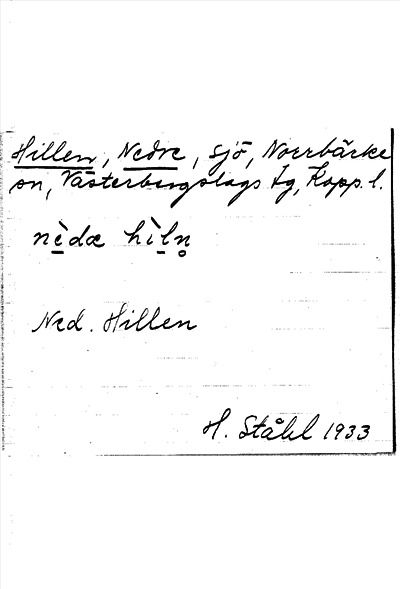 Hillen, Nedre, sjö, Norrbärke
sn, Västerbergslags tg, Kopp. l.
nèdæ hìln̥
Ned. Hillen
H. Ståhl 1933